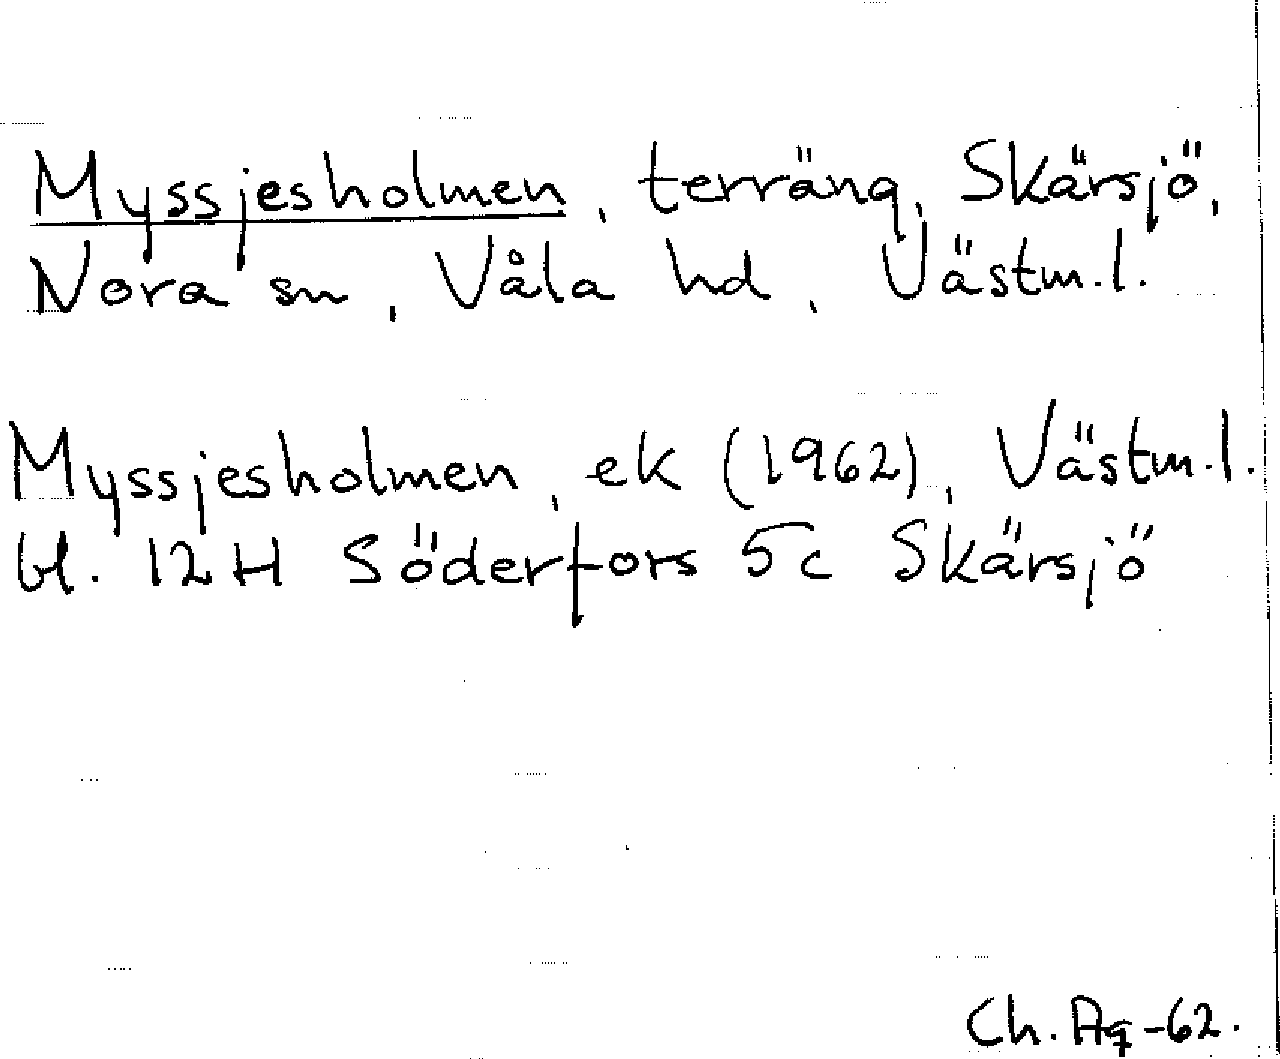 Myssjesholmen, terräng, Skärsjö,
Nora sn, Våla hd, Västm.l.
Myssjesholmen, ek (1962), Västm.l.
bl. 12H Söderfors 5c Skärsjö
Ch. Ag -62.